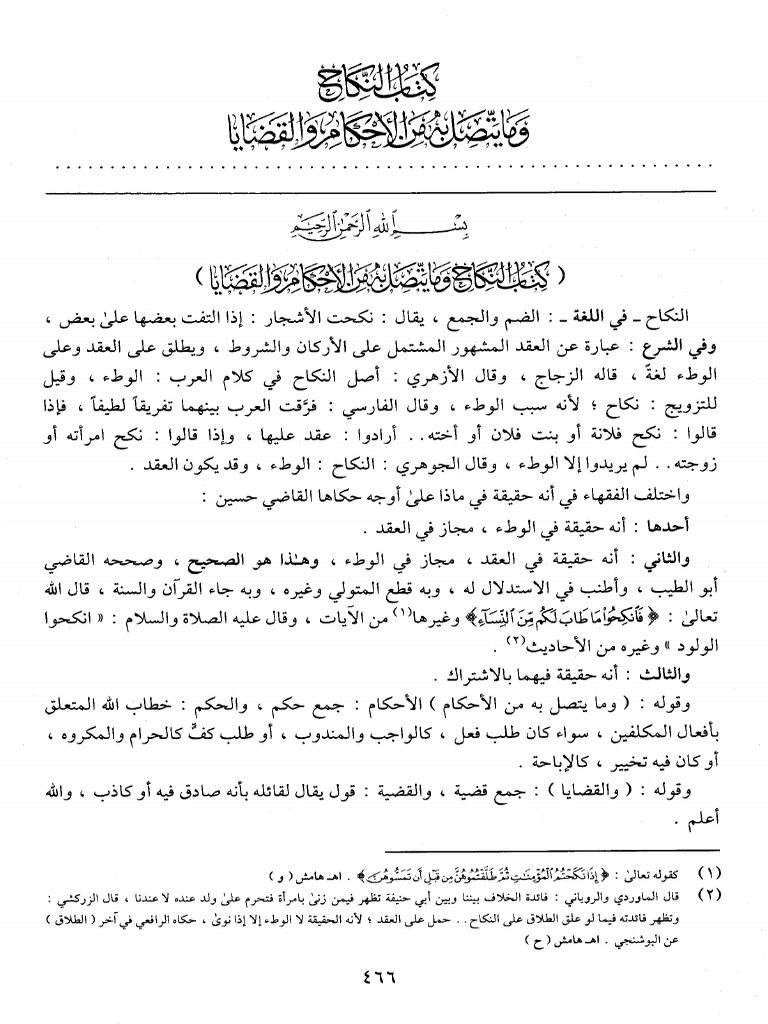 كتاب النكاح
وما يتصل به من الأحكام والقضايا
بسم الله الرحمن الرحيم
( كتاب النكاح وما يتصل به من الأحكام والقضايا )
النكاح ـ في اللغة ـ : الضم والجمع ، يقال : نكحت الأشجار : إذا التفت بعضها علىٰ بعض ،
وفي الشرع : عبارة عن العقد المشهور المشتمل على الأركان والشروط ، ويطلق على العقد وعلى
الوطء لغةً ، قاله الزجاج ، وقال الأزهري : أصل النكاح في كلام العرب : الوطء ، وقيل
للتزويج : نكاح ؛ لأنه سبب الوطء ، وقال الفارسي : فرَّقت العرب بينهما تفريقاً لطيفاً ، فإذا
قالوا : نكح فلانة أو بنت فلان أو أخته.. أرادوا : عقد عليها ، وإذا قالوا : نكح امرأته أو
زوجته.. لم يريدوا إلا الوطء ، وقال الجوهري : النكاح : الوطء ، وقد يكون العقد .
واختلف الفقهاء في أنه حقيقة في ماذا علىٰ أوجه حكاها القاضي حسين :
أحدها : أنه حقيقة في الوطء ، مجاز في العقد .
والثاني : أنه حقيقة في العقد ، مجاز في الوطء ، وهـٰذا هو الصحيح ، وصححه القاضي
أبو الطيب ، وأطنب في الاستدلال له ، وبه قطع المتولي وغيره ، وبه جاء القرآن والسنة ، قال الله
تعالىٰ : ﴿ فَأَنكِحُوا۟ مَا طَابَ لَكُم مِّنَ ٱلنِّسَآءِ ﴾ وغيرها(١) من الآيات ، وقال عليه الصلاة والسلام : « انكحوا
الولود » وغيره من الأحاديث(٢) .
والثالث : أنه حقيقة فيهما بالاشتراك .
وقوله : ( وما يتصل به من الأحكام ) الأحكام : جمع حكم ، والحكم : خطاب الله المتعلق
بأفعال المكلفين ، سواء كان طلب فعل ، كالواجب والمندوب ، أو طلب كفٍّ كالحرام والمكروه ،
أو كان فيه تخيير ، كالإباحة .
وقوله : ( والقضايا ) : جمع قضية ، والقضية : قول يقال لقائله بأنه صادق فيه أو كاذب ، والله
أعلم .
(١) كقوله تعالىٰ : ﴿ إِذَا نَكَحْتُمُ ٱلْمُؤْمِنَٰتِ ثُمَّ طَلَّقْتُمُوهُنَّ مِن قَبْلِ أَن تَمَسُّوهُنَّ ﴾ . اهـ هامش ( و )
(٢) قال الماوردي والروياني : فائدة الخلاف بيننا وبين أبي حنيفة تظهر فيمن زنىٰ بامرأة فتحرم علىٰ ولد عنده لا عندنا ، قال الزركشي :
وتظهر فائدته فيما لو علق الطلاق على النكاح.. حمل على العقد ؛ لأنه الحقيقة لا الوطء إلا إذا نوىٰ ، حكاه الرافعي في آخر ( الطلاق )
عن البوشنجي . اهـ هامش ( ح )
٤٦٦